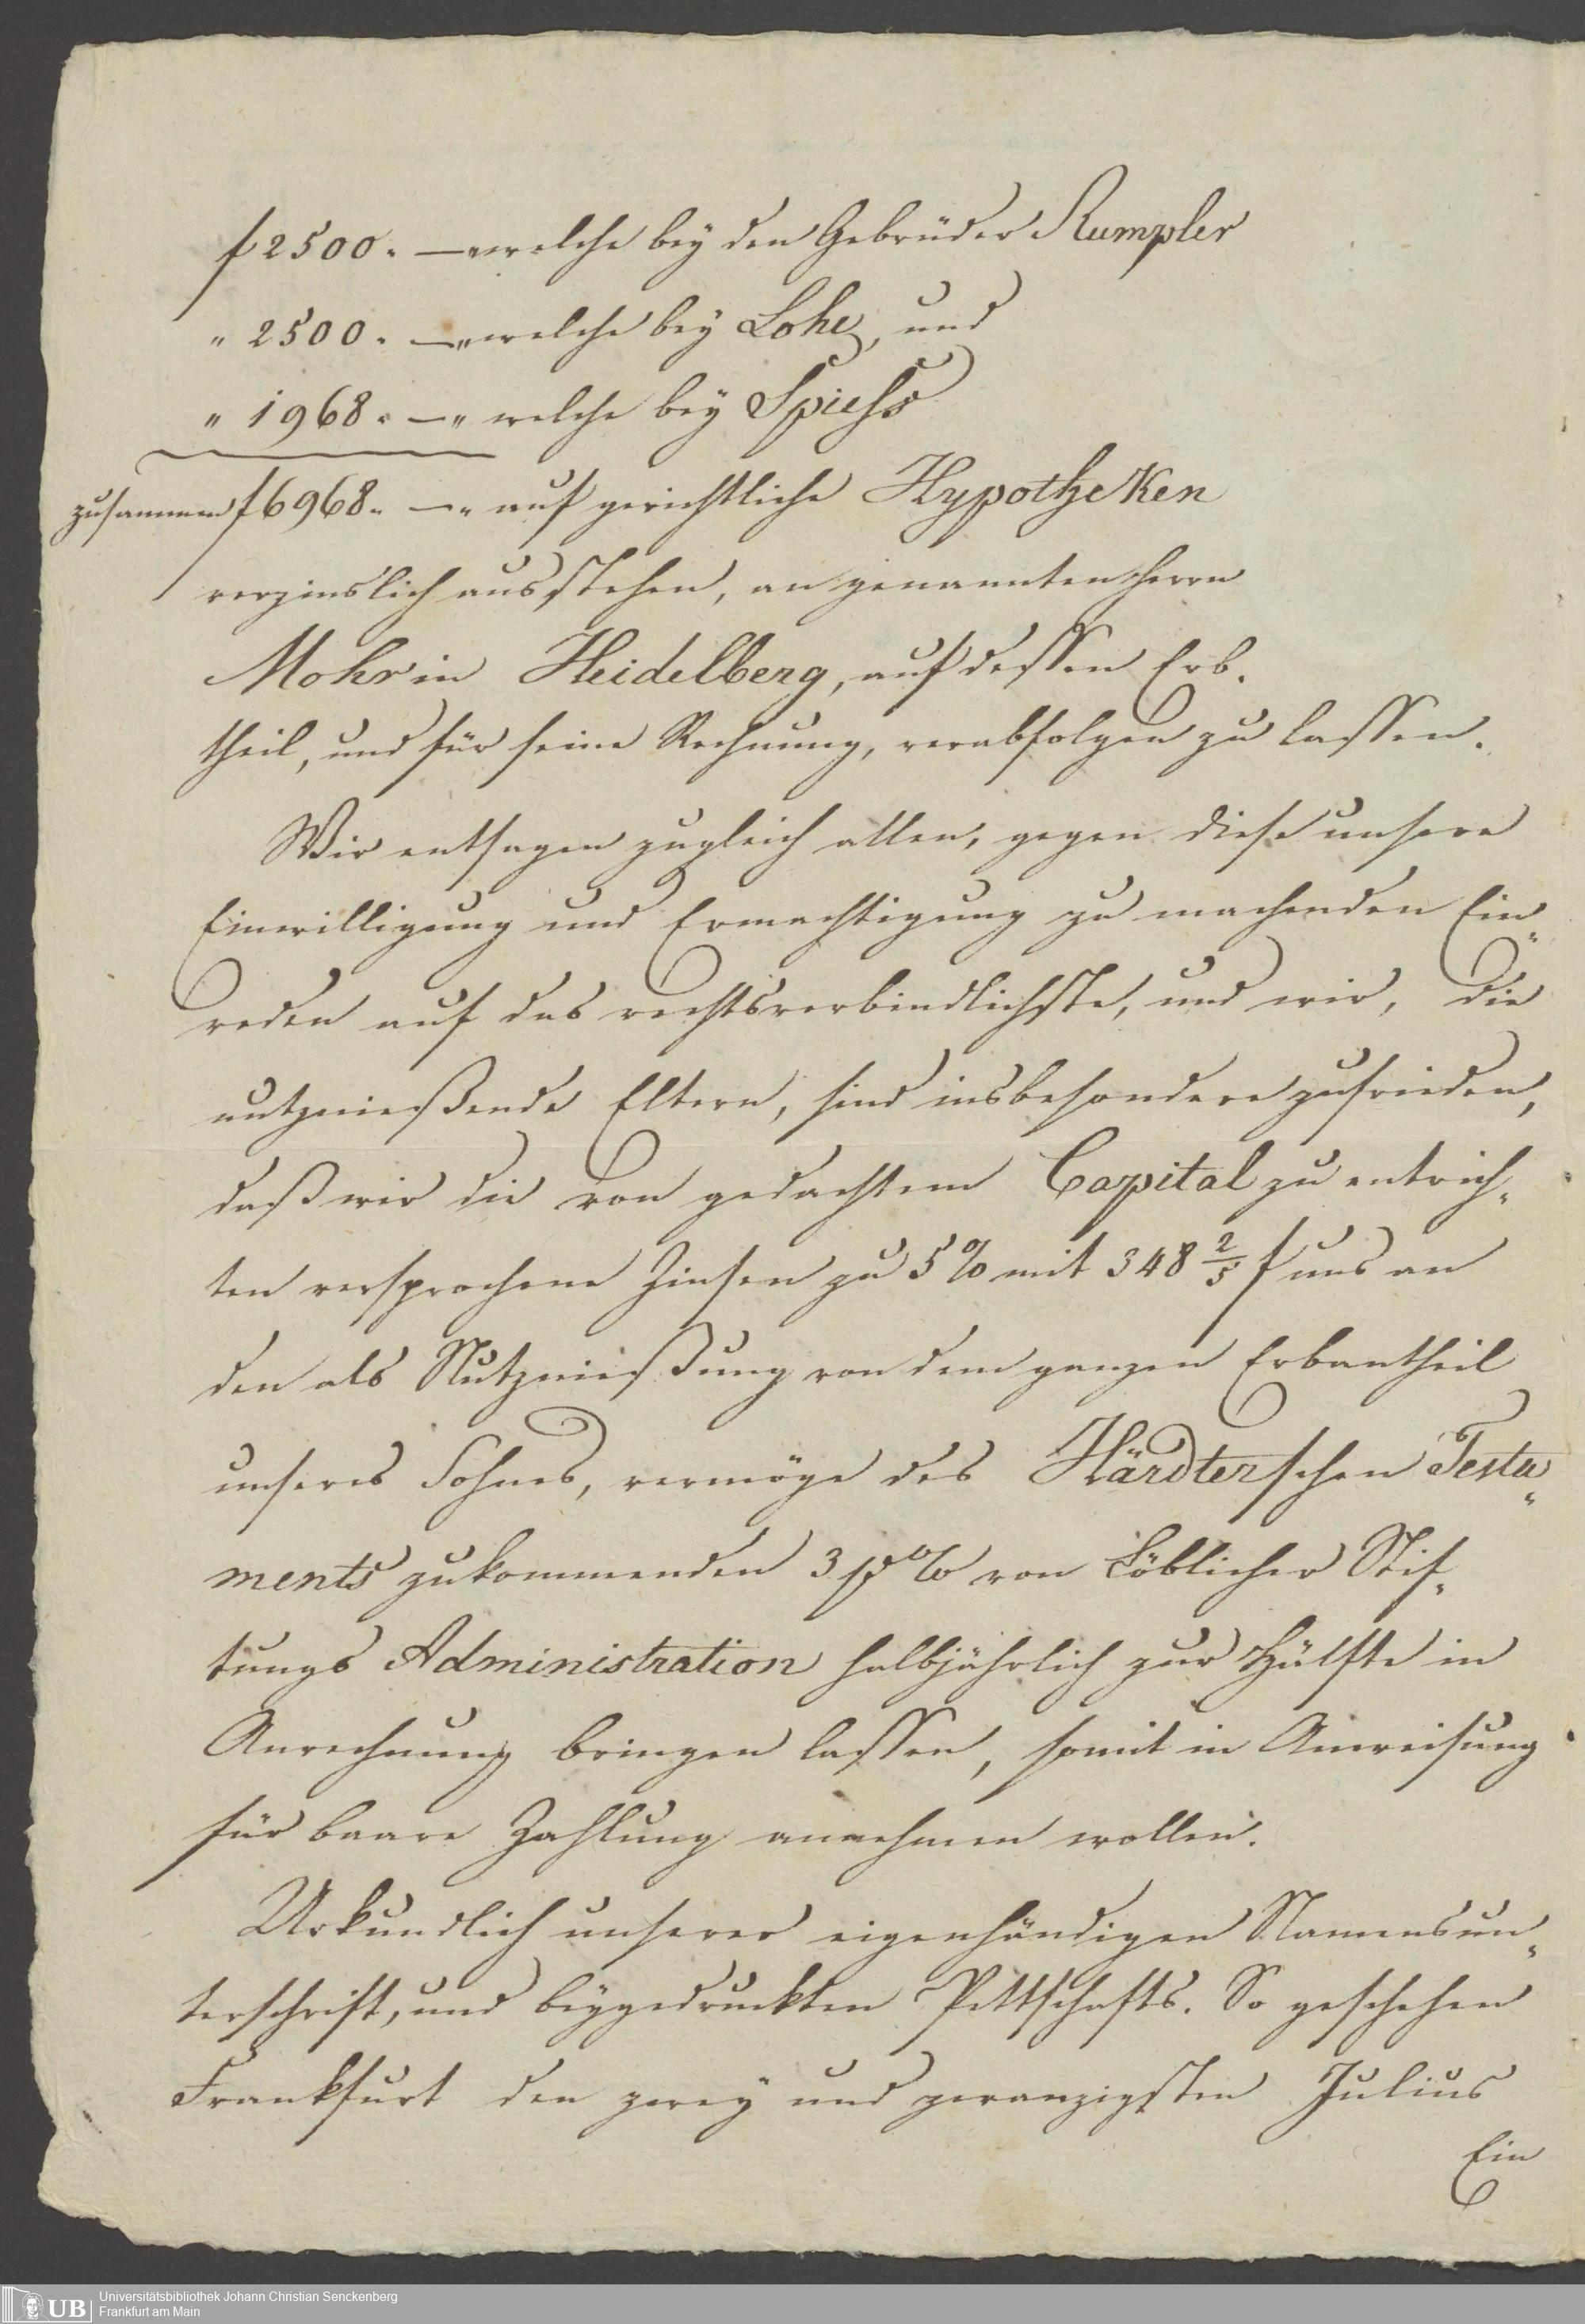 f 2500. — welche bey den Gebrüder Rumpler
" 2500. —" welche bey Lohe, und
" 1968. —" welche bey Spiess
zusammen f 6968. —" auf gerichtliche Hypotheken
verzinslich ausstehen, an genannten Herrn
Mohr in Heidelberg, auf dessen Erb-
theil, und für seine Rechnung, verabfolgen zu lassen.
Wir entsagen zugleich allen, gegen diese unsere
Einwilligung und Ermachtigung zu machenden Ein-
reden auf das rechtsverbindlichste, und wir, die
nutznießende Eltern, sind insbesondere zufrieden,
daß wir die von gedachtem Capital zu entrich-
ten versprochene Zinsen zu 5 % mit 348 2/5 f uns an
den als Nutznießung von dem ganzen Erbantheil
unseres Sohnes, vermöge des Härdterschen Testa-
ments zukommenden 3 p% von Löblicher Stif-
tungs Administration halbjährlich zur Hälfte in
Anrechnung bringen lassen, somit in Anweisung
für baare Zahlung annehmen wollen.
Urkundlich unserer eigenhändigen Namensun-
terschrift, und beygedruckten Pettschafts. So geschehen
Frankfurt den zwey und zwanzigsten Julius
Ein
UB Universitätsbibliothek Johann Christian Senckenberg
Frankfurt am Main